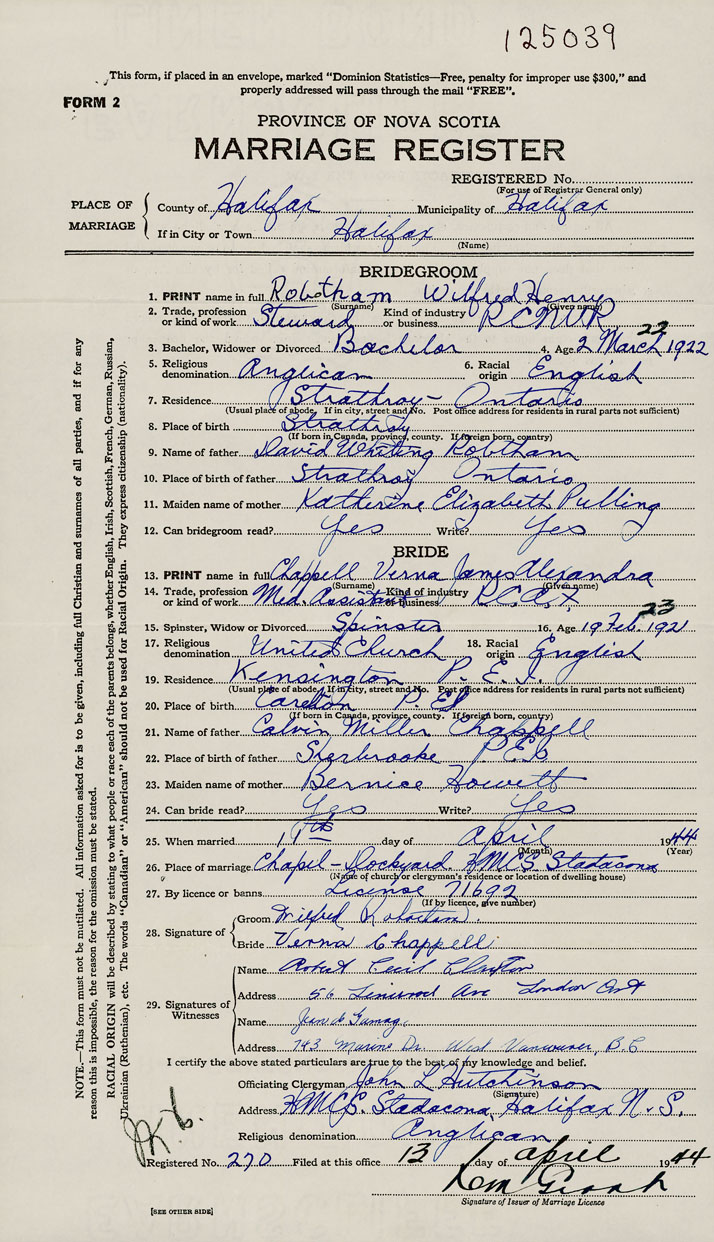 125039
This form, if placed in an envelope, marked "Dominion Statistics—Free, penalty for improper use $300," and
properly addressed will pass through the mail "FREE".
FORM 2
PROVINCE OF NOVA SCOTIA
MARRIAGE REGISTER
REGISTERED No.
(For use of Registrar General only)
PLACE OF MARRIAGE
County of Halifax Municipality of Halifax
If in City or Town Halifax
(Name)
BRIDEGROOM
1. PRINT name in full Robotham Wilfred Henry
(Surname) (Given name)
2. Trade, profession or kind of work Steward Kind of industry or business RCNVR
22
3. Bachelor, Widower or Divorced Bachelor 4. Age 2 March 1922
5. Religious denomination Anglican 6. Racial origin English
7. Residence Strathroy - Ontario
(Usual place of abode. If in city, street and No. Post office address for residents in rural parts not sufficient)
8. Place of birth Strathroy
(If born in Canada, province, county. If foreign born, country)
9. Name of father David Whiting Robtham
10. Place of birth of father Strathroy Ontario
11. Maiden name of mother Katherine Elizabeth Pulling
12. Can bridegroom read? Yes Write? Yes
BRIDE
13. PRINT name in full Chappell Verna James Alexandra
(Surname) (Given name)
14. Trade, profession or kind of work Med. Assistant Kind of industry or business
23
15. Spinster, Widow or Divorced Spinster 16. Age 19 Feb. 1921
17. Religious denomination United Church 18. Racial origin English
19. Residence Kensington P.E.I.
(Usual place of abode. If in city, street and No. Post office address for residents in rural parts not sufficient)
20. Place of birth Carelton P.EI
(If born in Canada, province, county. If foreign born, country)
21. Name of father Calvin Miller Chappell
22. Place of birth of father Sherbrooke P.E.I.
23. Maiden name of mother Bernice Howett
24. Can bride read? Yes Write? Yes
25. When married day of April 1944
(Month) (Year)
26. Place of marriage Chapel - Dockyard HMCS. Stadacona
(Name of church or clergyman's residence or location of dwelling house)
27. By licence or banns License 71692
(If by licence, give number)
28. Signature of
Groom Wilfred Robotham.
Bride Verna Chappell.
29. Signatures of Witnesses
Name Robert Cecil Clayton
Address 56 Linwood Ave London Ont
Name Jean
Address 743 Marine Dr. West Vancouver, B.C
I certify the above stated particulars are true to the best of my knowledge and belief.
Officiating Clergyman John L Hutchinson
(Signature)
Address HMCS. Stadacona, Halifax N.S.
Religious denomination Anglican
Registered No. 270 Filed at this office 13 day of April 1944
Signature of Issuer of Marriage Licence
[SEE OTHER SIDE]
NOTE.—This form must not be mutilated. All information asked for is to be given, including full Christian and surnames of all parties, and if for any
reason this is impossible, the reason for the omission must be stated.
RACIAL ORIGIN will be described by stating to what people or race each of the parents belongs, whether English, Irish, Scottish, French, German, Russian,
Ukrainian (Ruthenian), etc. The words "Canadian" or "American" should not be used for Racial Origin. They express citizenship (nationality).